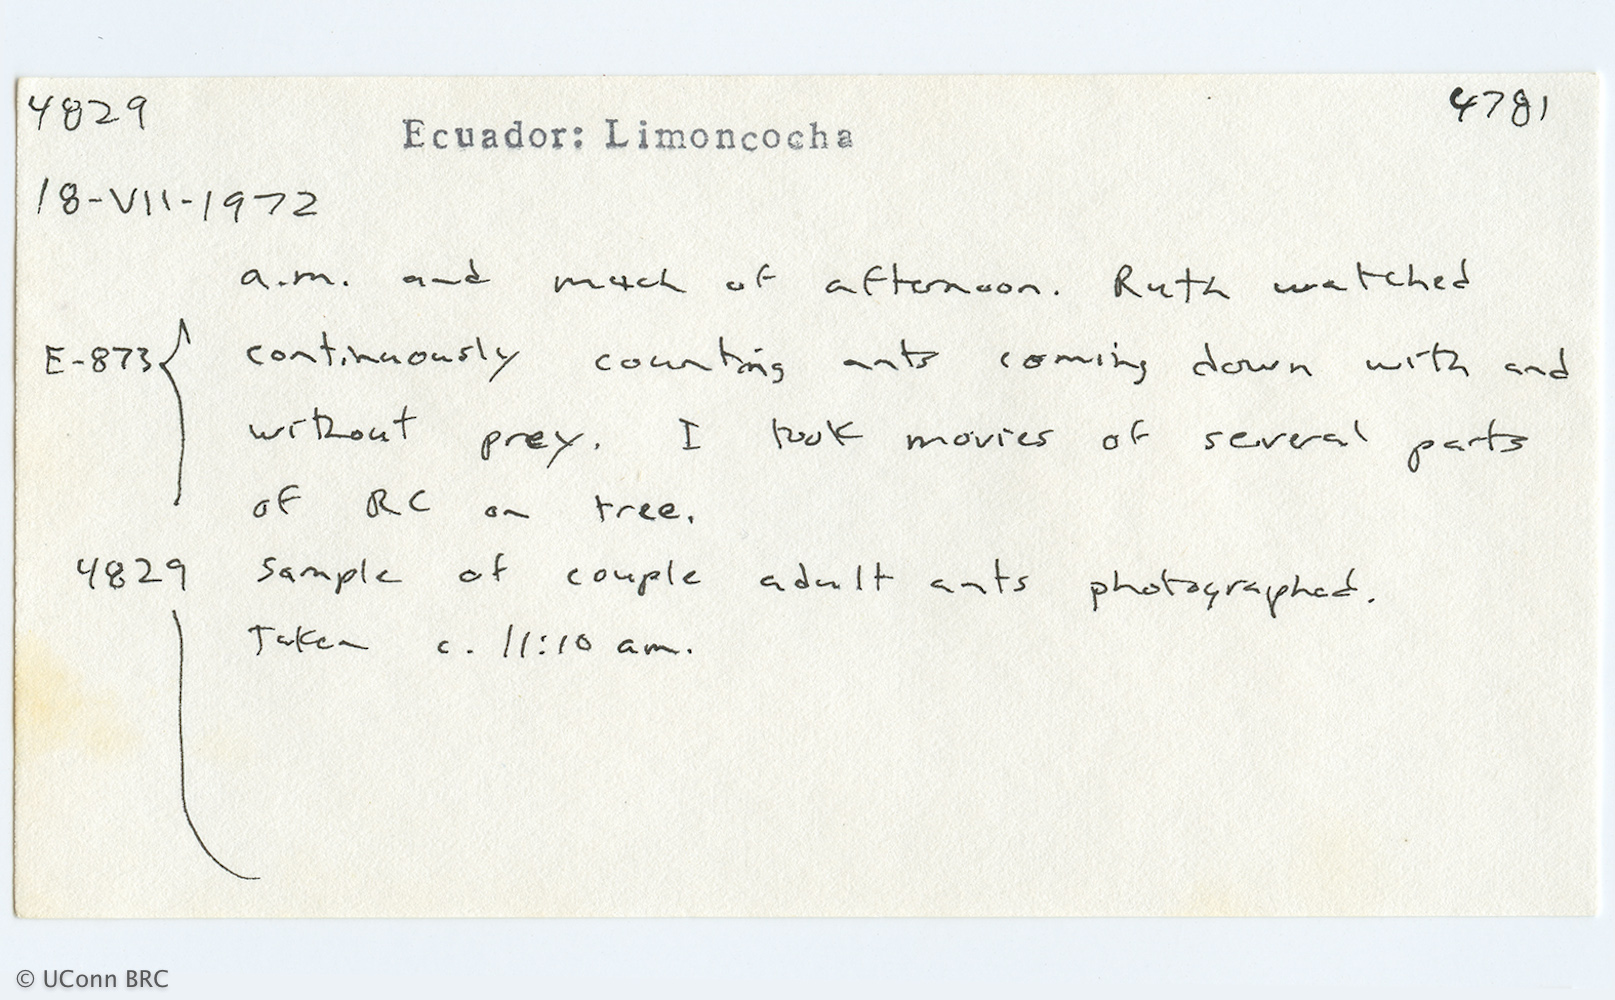 4829
4781
Ecuador: Limoncocha
18-VII-1972
a.m. and much of afternoon. Ruth watched
E-873 continuously counting ants coming down with and
without prey. I took movies of several parts
of RC on tree.
4829 Sample of couple adult ants photographed.
Taken c. 11:10 am.
© UConn BRC